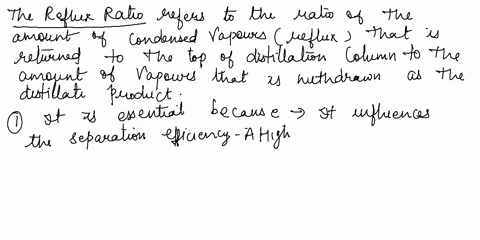 The Reflux Ratio refers to the ratio of the
amount of Condensed Vapours (reflux) that is
returned to the top of distillation Column to the
amount of Vapours that is withdrawn as the
distillate product.
① It is essential because → It influences
the separation efficiency - A High